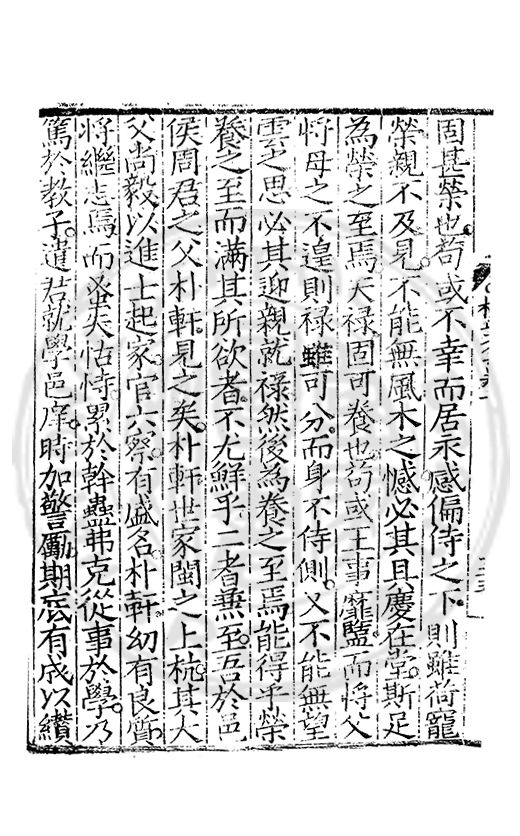 固甚榮也。苟或不幸而居永感偏侍之下。則雖荷寵
榮親不及見。不能無風木之憾必其具慶在堂。斯足
為榮之至焉。天祿固可養也。苟或王事靡盬。而將父
將母之不遑則祿雖可分。而身不侍側。又不能無望
雲之思必其迎親就祿然後為養之至焉能得乎榮
養之至而滿其所欲者。不尤鮮乎二者兼至。吾於邑
侯周君之父朴軒見之矣。朴軒世家閩之上杭。其大
父尚毅以進士起家官六察。有盛名。朴軒幼有良質。
將繼志焉而蚤失怙恃。累於幹蠱弗克從事於學。乃
篤於教子。遣君就學邑庠。時加警勵。期底有成以纘